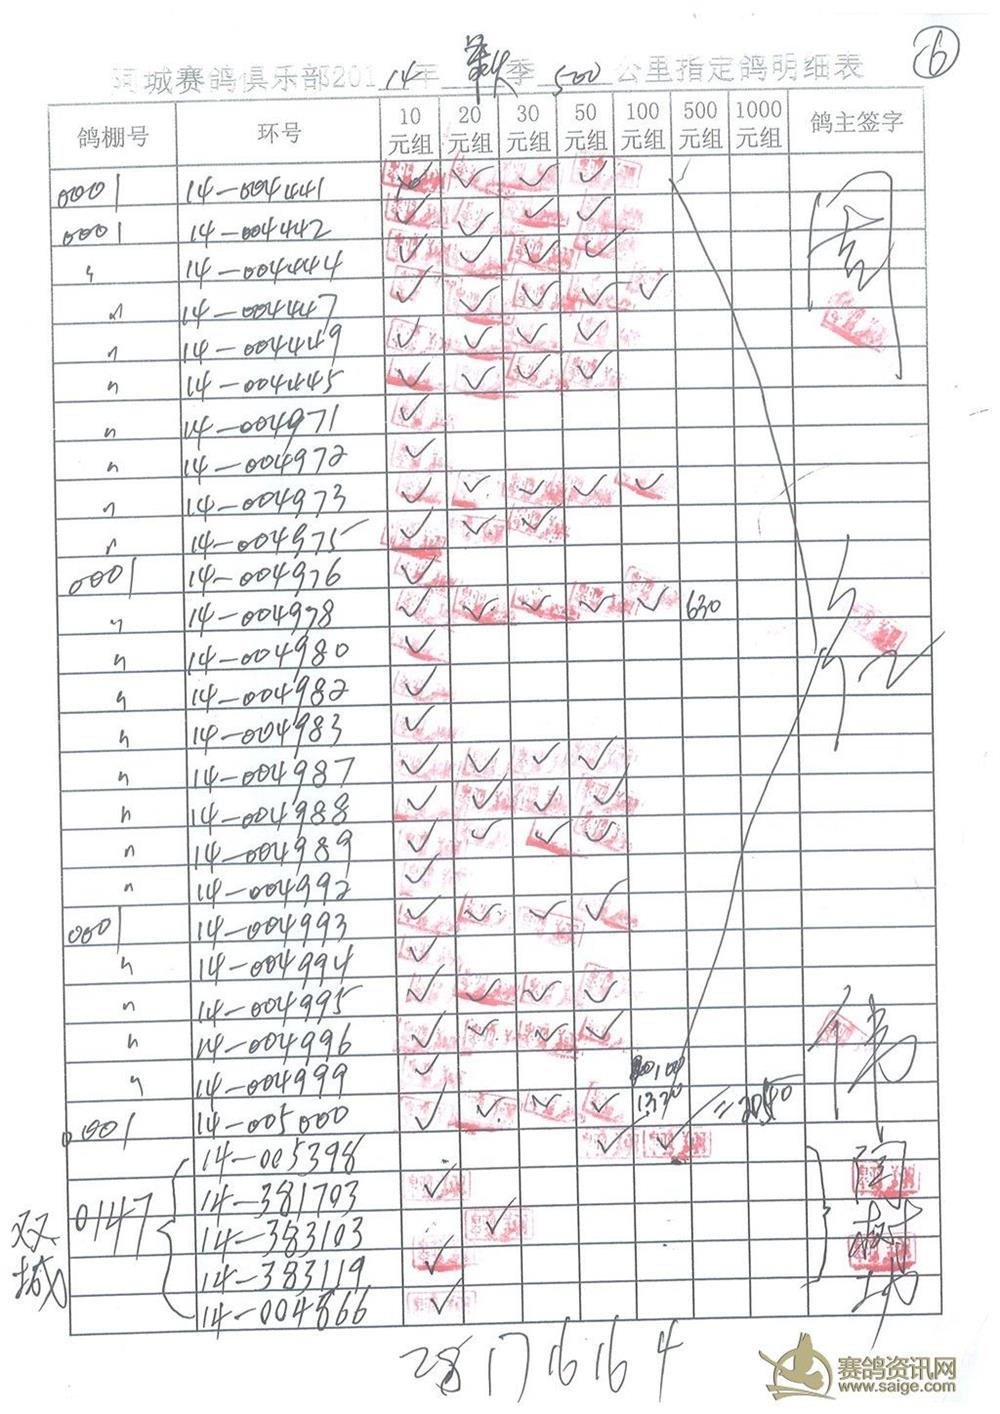 6
阿城赛鸽俱乐部2014年 秋 季 500 公里指定鸽明细表
鸽棚号 环号 10元组 20元组 30元组 50元组 100元组 500元组 1000元组 鸽主签字
0001 14-004441 ✓ ✓ ✓ ✓
0001 14-004442 ✓ ✓ ✓ ✓
〃 14-004444 ✓ ✓ ✓ ✓
〃 14-004447 ✓ ✓ ✓ ✓ ✓
〃 14-004449 ✓ ✓ ✓ ✓
〃 14-004445 ✓ ✓ ✓ ✓
〃 14-004971 ✓
〃 14-004972 ✓
〃 14-004973 ✓ ✓ ✓ ✓ ✓
〃 14-004975 ✓ ✓ ✓
0001 14-004976 ✓
〃 14-004978 ✓ ✓ ✓ ✓ ✓ 630
〃 14-004980 ✓
〃 14-004982 ✓
〃 14-004983 ✓
〃 14-004987 ✓ ✓ ✓ ✓
〃 14-004988 ✓ ✓ ✓ ✓
〃 14-004989 ✓ ✓ ✓ ✓
〃 14-004992 ✓
0001 14-004993 ✓ ✓ ✓ ✓
〃 14-004994 ✓
〃 14-004995 ✓ ✓ ✓ ✓
〃 14-004996 ✓ ✓ ✓ ✓ 伟
〃 14-004999 ✓
0001 14-005000 ✓ ✓ ✓ ✓ 1320 =2040
14-005398 ✓ ✓
双城 0147 14-381703 ✓
14-383103 ✓
14-383119 ✓
14-004866 ✓
28 17 16 16 4
赛鸽资讯网
www.saige.com